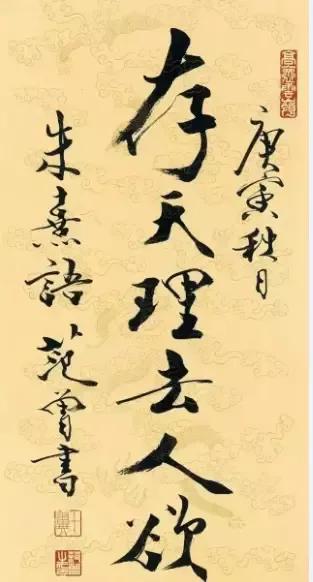 庚寅秋月
存天理去人欲
朱熹語 范曾書